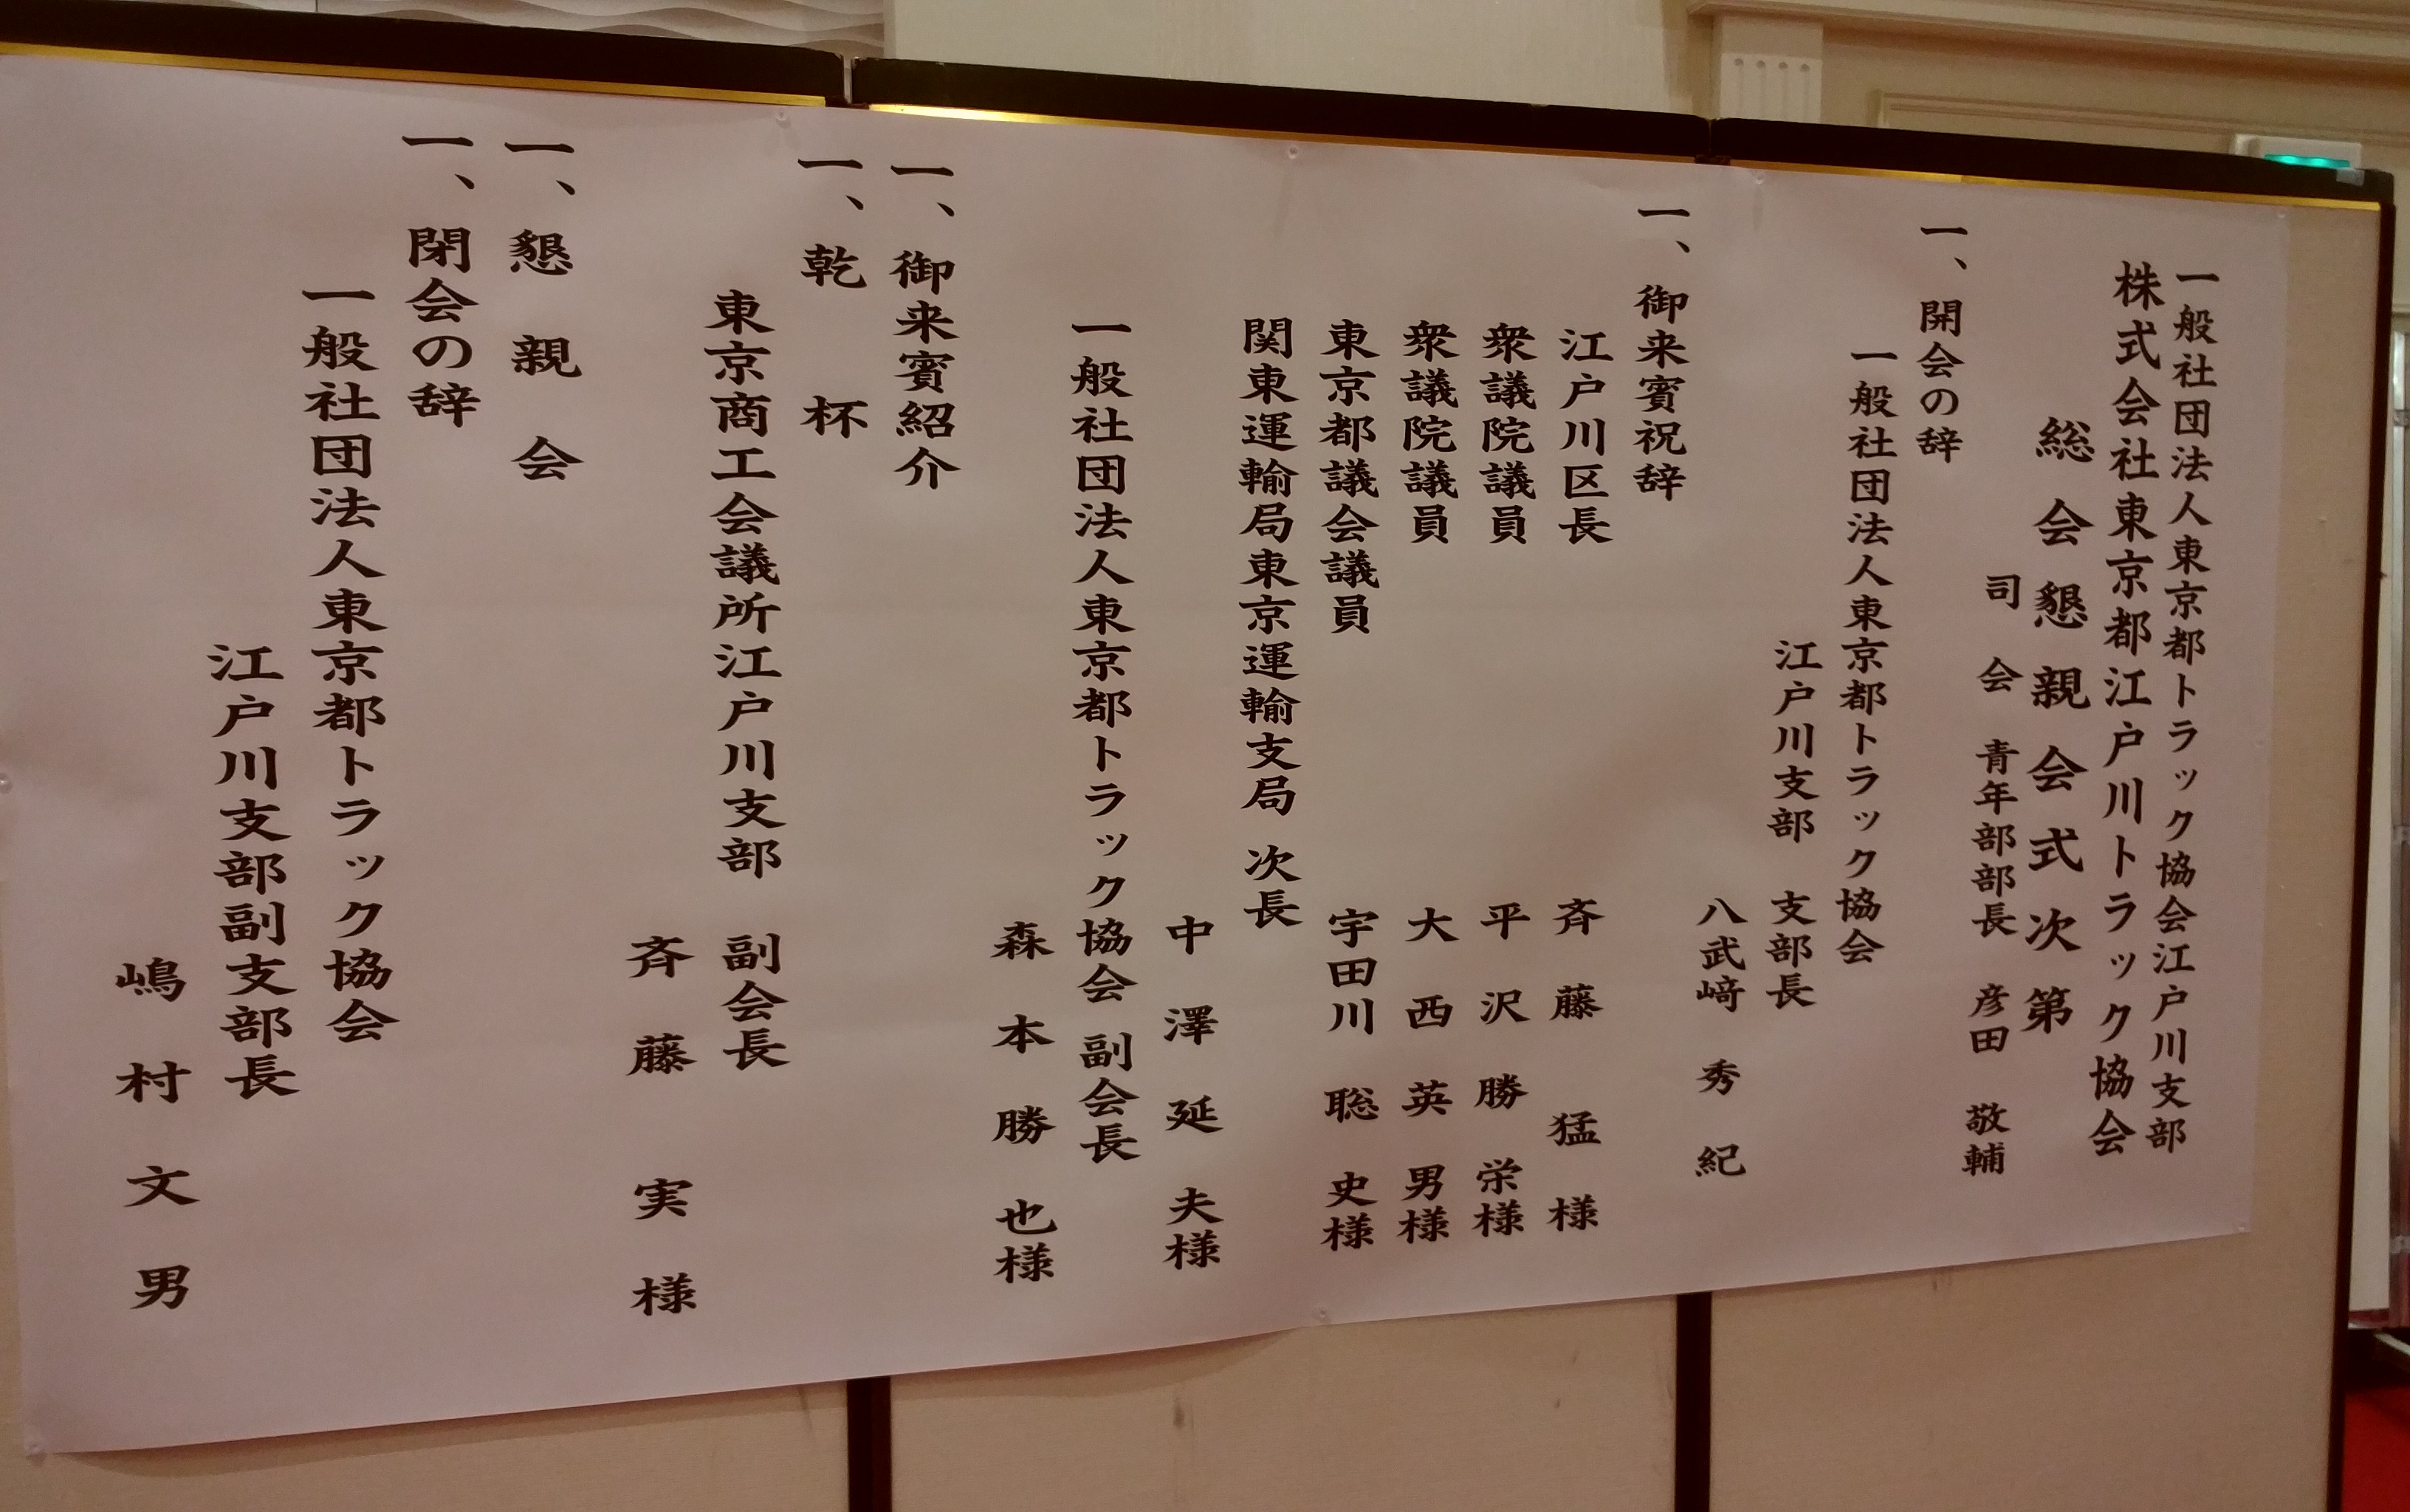 一般社団法人東京都トラック協会江戸川支部
株式会社東京都江戸川トラック協会
総会懇親会式次第
司会 青年部部長 彦田 敬輔
一、開会の辞
一般社団法人東京都トラック協会
江戸川支部 支部長
八武﨑 秀紀
一、御来賓祝辞
江戸川区長 斉藤 猛 様
衆議院議員 平沢勝栄様
衆議院議員 大西英男様
東京都議会議員 宇田川聡史様
関東運輸局東京運輸支局 次長
中澤延夫様
一般社団法人東京都トラック協会 副会長
森本勝也様
一、御来賓紹介
一、乾杯
東京商工会議所江戸川支部 副会長
斉藤 実 様
一、懇親会
一、閉会の辞
一般社団法人東京都トラック協会
江戸川支部副支部長
嶋村文男